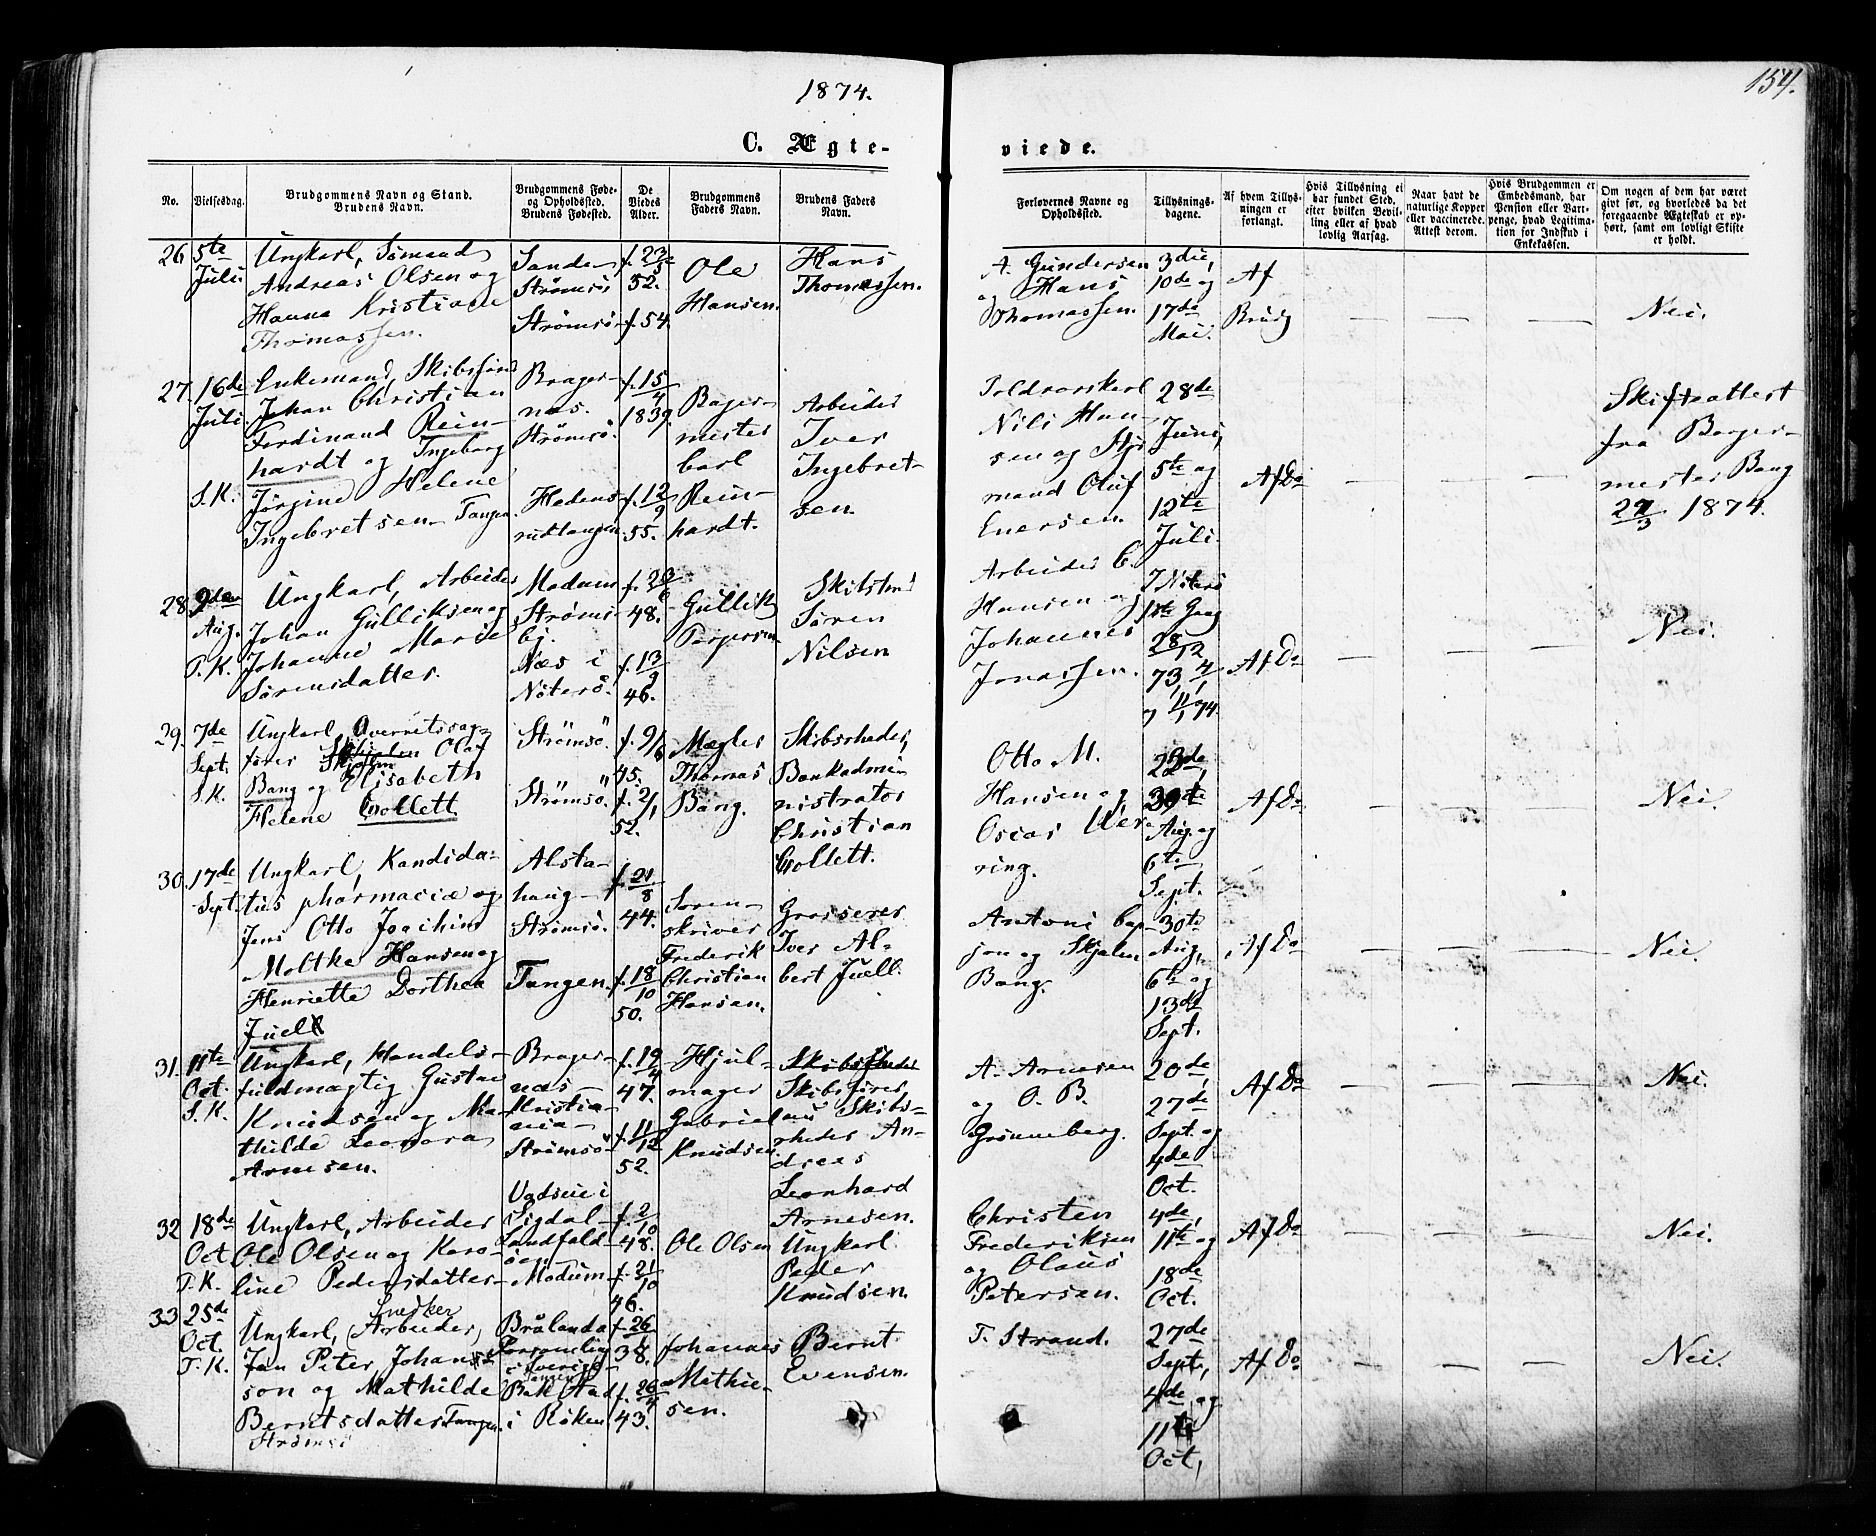 1874.
154.
C. Ægte-
viede.
No.
Vielsesdag.
Brudgommens Navn og Stand.
Brudens Navn.
Brudgommens Føde-
og Opholdssted.
Brudens Fødested.
De
Viedes
Alder.
Brudgommens
Faders Navn.
Brudens Faders
Navn.
Forlovernes Navne og
Opholdssted.
Tillysnings-
dagene.
Af hvem Tillys-
ningen er
forlangt.
Hvis Tillysning ei
har fundet Sted,
efter hvilken Bevil-
ling eller af hvad
lovlig Aarsag.
Naar havt de
naturlige Kopper
eller vaccinerede.
Attest derom.
Hvis Brudgommen er
Embedsmand, har
Pension eller Vart-
penge, hvad Legitima-
tion for Indskud i
Enkekassen.
Om nogen af dem har været
givt før, og hvorledes da det
foregaaende Ægteskab er op-
hørt, samt om lovligt Skifte
er holdt.
26
5te
Juli.
Ungkarl, Sømand
Andreas Olsen og
Hanna Kristiane
Thomassen.
Sande-
Strømsö
Strömsö-
f. 23/5
52.
f. 54.
Ole
Hansen.
Hans
Thomassen.
A. Gundersen
og Hans
Thomassen.
3die,
10de og
17de
Mai.
Af
Brudg
Nei.
27.
16de
Juli.
S.K.
Enkemand, Skibsfører
Johan Christian
Ferdinand Rein-
hardt og Ingeborg
Jørgine Helene
Ingebretsen- Tangen.
Brager-
næs.
Strømsö.
Hedens-
rudtangen
f. 15/4
1839.
f. 12/9
55.
Bager-
mester
Carl
Rein-
hardt.
Arbeider
Iver
Ingebret-
sen.
Toldvarskarl
Nils Han-
sen og Sjö-
mand Oluf
Enersen.
28de
Juni,
5te og
12te
Juli.
Af Do
Skifteattest
fra Borger-
mester Bang
1874.
28
9de
Aug.
T.K.
Ungkarl, Arbeider
Johan Gulliksen og
Johanne Marie
Sörensdatter.
Modum
Strömsö
Næs i
Nöterö.
48.
f. 13/9
46.
Gullik
Skibstmd
Sören
Nilsen
Arbeider C.
Hansen og
Johannes
Jonassen.
I Nöterö
1ste Gang
28/12
73 4/1
11/1 74.
Af Do
Nei.
29.
7de
Sept.
S.K.
Ungkarl, Overretssag-
fører Skjelm Olaf
Bang og Elisabeth
Helene Collett
Strömsö.
Strömsö.
f. 9/6
45.
f. 2/1
52.
Mægler
Thomas
Bang.
Skibsrheder,
Bankadmi-
nistrator
Christian
Collett.
Otto M.
Hansen og
Oscar Wer-
ring.
23de,
30te
Aug. og
6te
Sept.
Af Do
Nei.
30.
17de
Sept.
Ungkarl, Kandida-
tus pharmaciæ og
Jens Otto Joachim
Moltke Hansen og
Henriette Dorthea
Juell
Alsta-
haug-
Strømsö.
Tangen.
f. 21/8
44.
f. 18/10
50.
Soren-
skriver
Frederik
Christian
Hansen.
Grosserer
Iver Al-
bert Juell.
Antoni Cap-
jon og Skjelm
Bang.
30te
Aug.,
6te og
13de
Sept.
Af Do
Nei.
31.
11te
Oct.
S.K.
Ungkarl, Handels-
fuldmægtig Gustav
Knudsen og Ma-
thilde Leonora
Arnesen.
Brager-
næs-
Kristia-
nia-
Strømsö
f. 19/4
47.
f. 11/12
52.
Hjul-
mager
Gabriel
Knudsen.
Skibsrheder
Skibsfører,
nu Skibs-
rheder An-
dreas
Leonhard
Arnesen.
A. Arnesen
og O. B.
Grönneberg.
20de,
27de
Sept. og
4de
Oct.
Af Do
Nei.
32
18de
Oct
T.K.
Ungkarl, Arbeider
Ole Olsen og Karo-
line Pedersdatter-
Sigdal-
Landfald-
öen-
Modum
f. 2/10
48.
f. 21/10
46.
Ole Olsen
Ungkarl
Peder
Knudsen.
Christen
Frederiksen
og Olaus
Petersen.
4de,
11te og
18de
Oct.
Af Do
Nei.
33
25de
Oct.
T.K.
Snedker
Ungkarl, (Arbeider)
Jan Peter Johans-
son og Mathilde
Berntsdatter Tangen.
Strömsö
Brålanda
Forsamling
i Sverige-
Tangen
Bakstad
i Röken
f. 26
38.
f. 26/4
43.
Johannes
Mathie-
sen.
Bernt
Evensen.
T. Strand.
27de
Sept.,
4de og
11te
Oct.
Af Do
Nei.